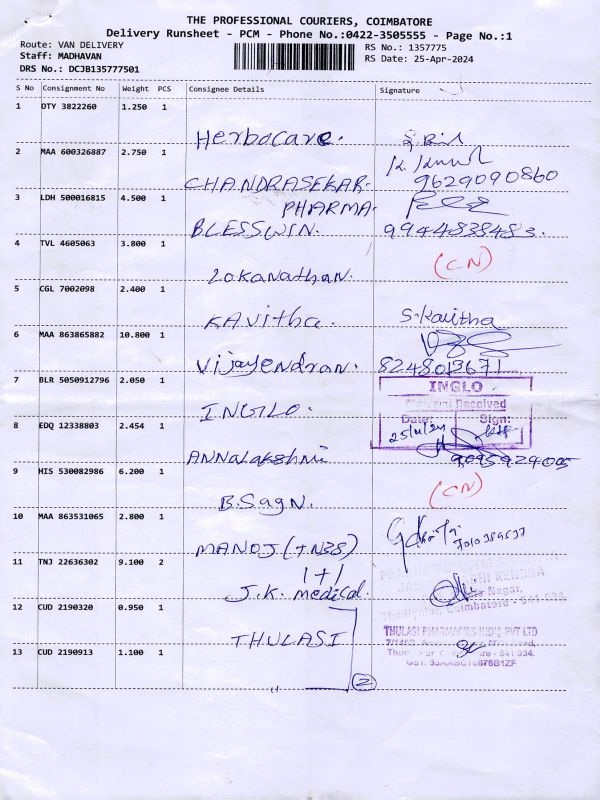 THE PROFESSIONAL COURIERS, COIMBATORE
Delivery Runsheet - PCM - Phone No.:0422-3505555 - Page No.:1
Route: VAN DELIVERY
Staff: MADHAVAN
DRS No.: DCJB135777501
RS No.: 1357775
RS Date: 25-Apr-2024
S No Consignment No Weight PCS Consignee Details Signature
1 OTY 3822260 1.250 1
Herbocare.
2 MAA 600326887 2.750 1
CHANDRASEKAR- 9629090860
3 LDH 500016815 4.500 1
PHARMA.
BLESSWIN. 9944838483.
4 TVL 4605063 3.800 1
(CN)
Lokanathan.
5 CGL 7002098 2.400 1
Kavitha. S. Kavitha
6 MAA 863865882 10.800 1
Vijayendran. 8248013671
7 BLR 5050912796 2.050 1
INGLO
Material Received
INGLO.
Date: Sign:
8 EDQ 12338803 2.454 1
25/4/24
Annalakshmi 9095924005
9 HIS 530082986 6.200 1
(CN)
B.Sagn.
10 MAA 863531065 2.800 1
7010389537
MANOJ (TN38)
11 TNJ 22636302 9.100 2
1+1
J.K. medical.
Nagar,
Coimbatore - 641 034.
12 CUD 2190320 0.950 1
THULASI
THULASI PHARMACIES IND'Z PVT LTD
13 CUD 2190913 1.100 1
641 034.
GST: 33AABCT0876B1ZF
〃 2